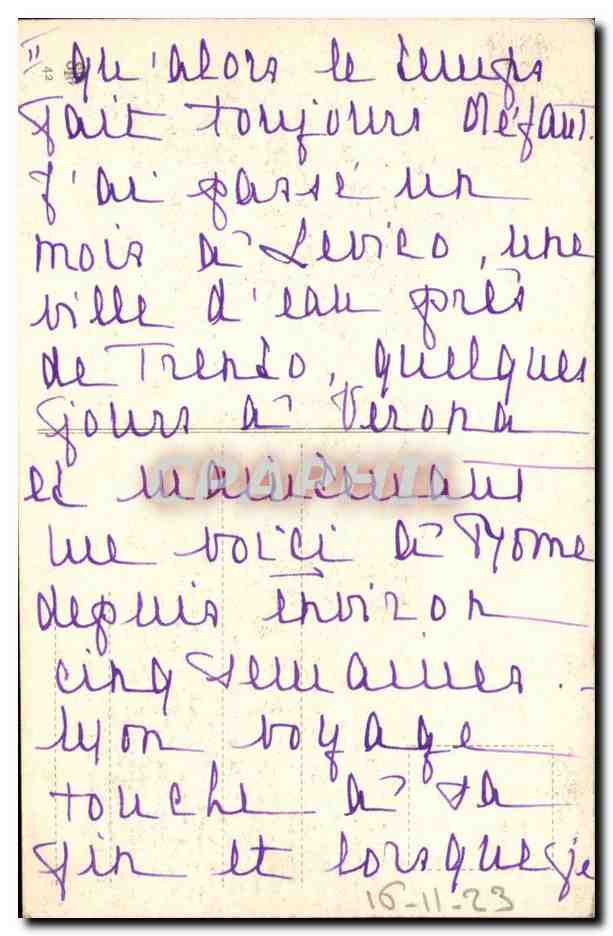 II)
42
qu'alors le temps
fait toujours défaut.
J'ai passé un
mois à Levico, une
ville d'eau près
de Trento, quelques
jours à Verona
et maintenant
me voici à Rome
depuis environ
cinq semaines.
Mon voyage
touche à sa
fin et lorsque je
16-11-23
CPAPHIL